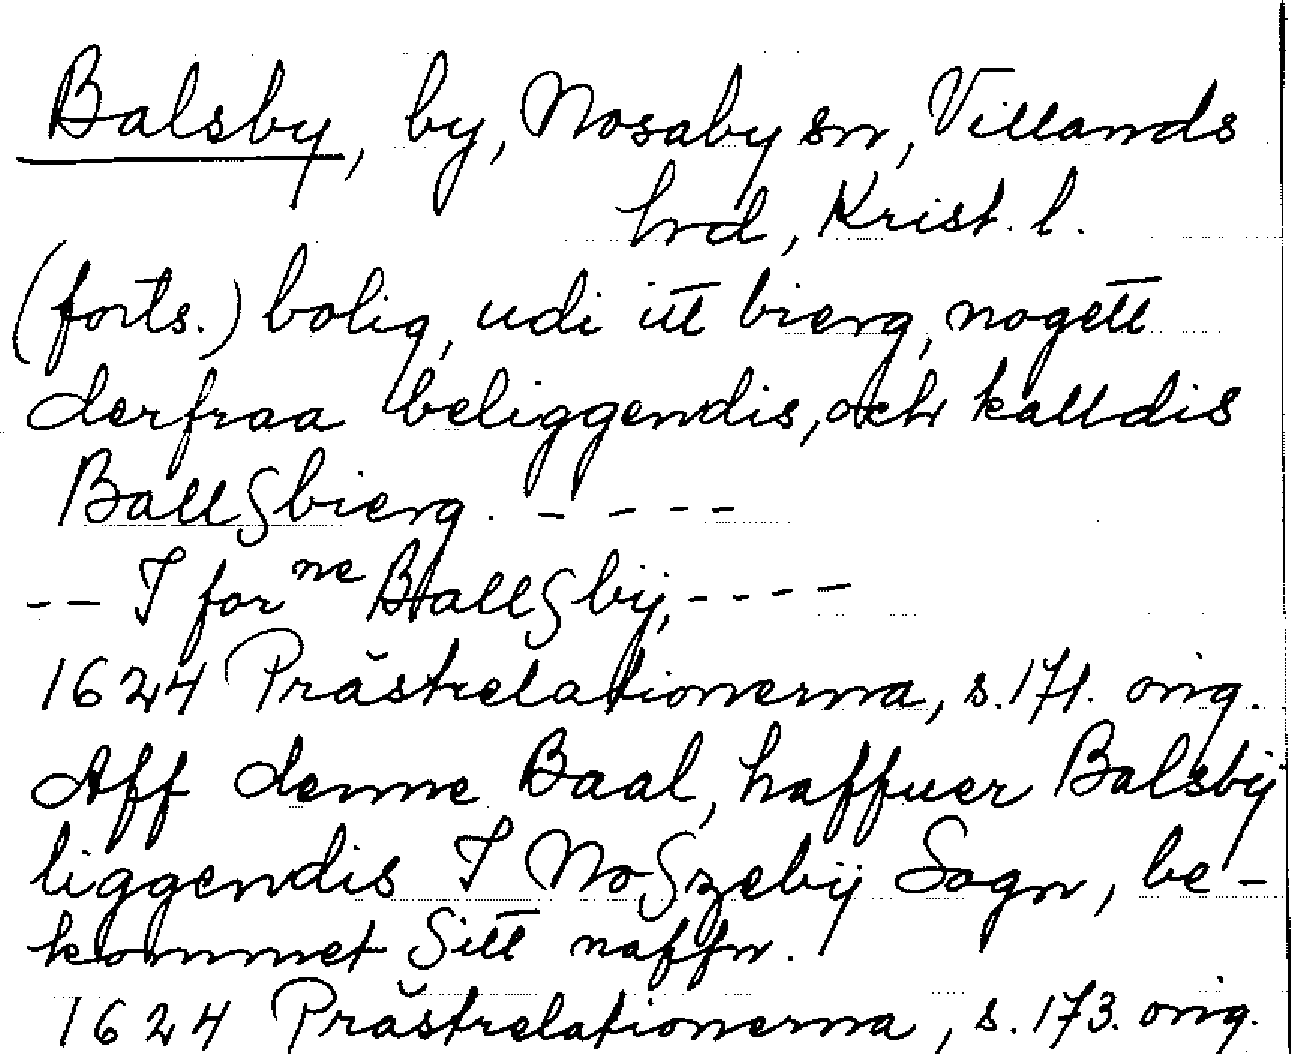 Balsby, by, Nosaby sn, Villands
hrd, Krist. l.
(forts.) bolig, udi itt bierg, nogett
derfraa beliggendis, och kalldis
Ballßbierg. - - - -
-- I forne Ballßbÿ, - - - -
1624 Prästrelationerna, s. 171. orig.
Aff denne Baal, haffuer Balsbÿ
liggendis I Noßzebÿ Sogn, be-
kommet Sitt naffn.
1624 Prästrelationerna, s. 173. orig.